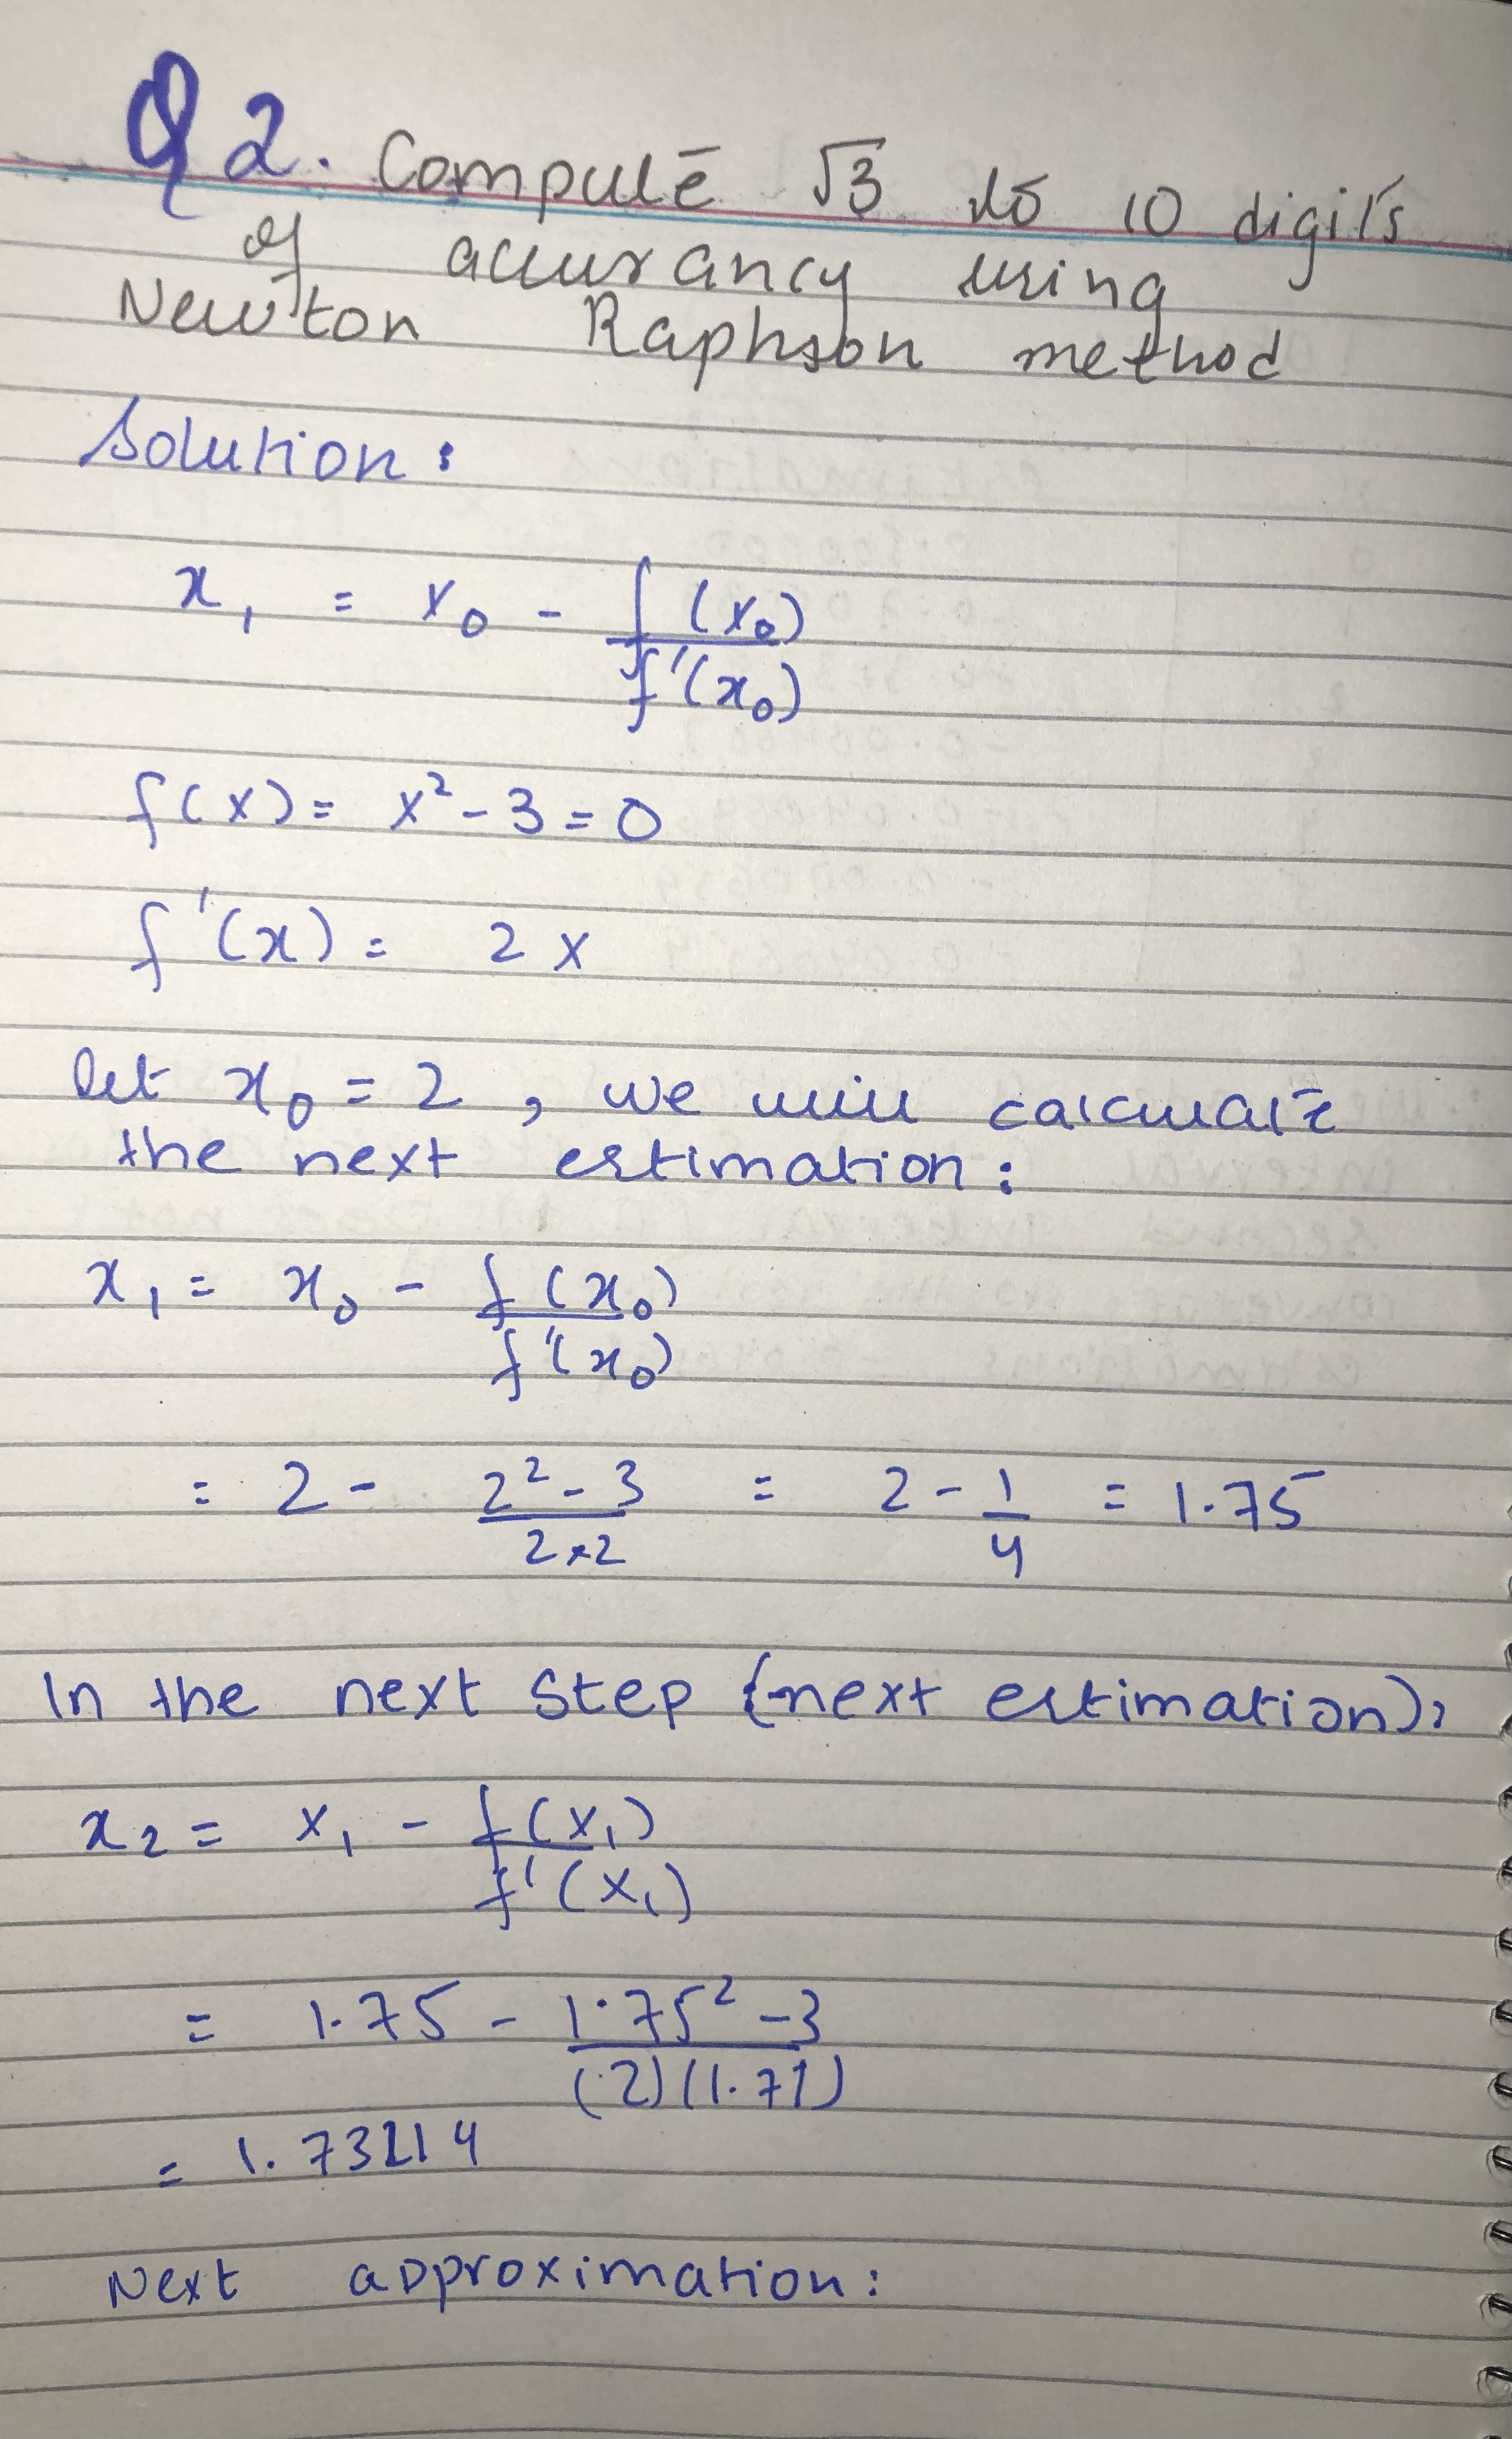 Q2. Compute √3 to 10 digits
of accurancy using
Newton Raphson method
Solution:
x₁ = x₀ - f(x₀)
f'(x₀)
f(x) = x² - 3 = 0
f'(x) = 2x
let x₀ = 2, we will calculate
the next estimation:
x₁ = x₀ - f(x₀)
f'(x₀)
= 2 - 2² - 3 = 2 - 1 = 1.75
2×2 4
In the next step (next estimation),
x₂ = x₁ - f(x₁)
f'(x₁)
= 1.75 - 1.75² - 3
(2)(1.71)
= 1.73214
Next approximation: